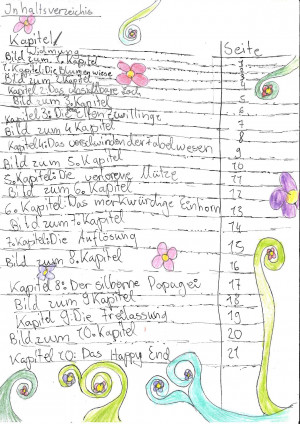 Inhaltsverzeichnis
Kapitel/ Seite
Widmung
Bild zum 1. Kapitel
1. Kapitel: Die Blumenwiese
Bild zum 2. Kapitel
Kapitel 2: Das
Bild zum 3. Kapitel
Kapitel 3: Die 7
Bild zum 4 Kapitel 8
Kapitel 4: Das verschwinden der Fabelwesen 9
Bild zum 5. Kapitel 10
5. Kapitel: Die verlorene Mütze 11
Bild zum 6. Kapitel 12
6. Kapitel: Das merkwürdige Einhorn 13
Bild zum 7. Kapitel 14
7. Kapitel: Die Auflösung 15
Bild zum 8. Kapitel 16
Kapitel 8: Der silberne Papagei 17
Bild zum 9 Kapitel 18
Kapitel 9: Die Freilassung 19
Bild zum 10. Kapitel 20
Kapitel 10: Das Happy End 21